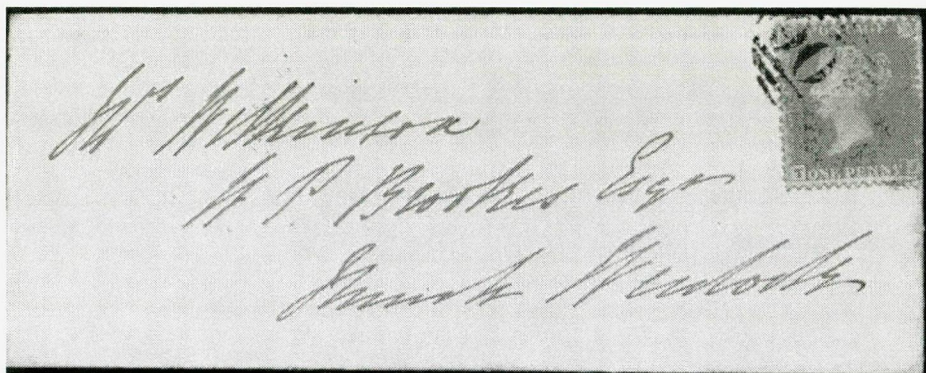 Mrs Wilkinson
W P Brookes Esqr
Much Wenlock
ONE PENNY